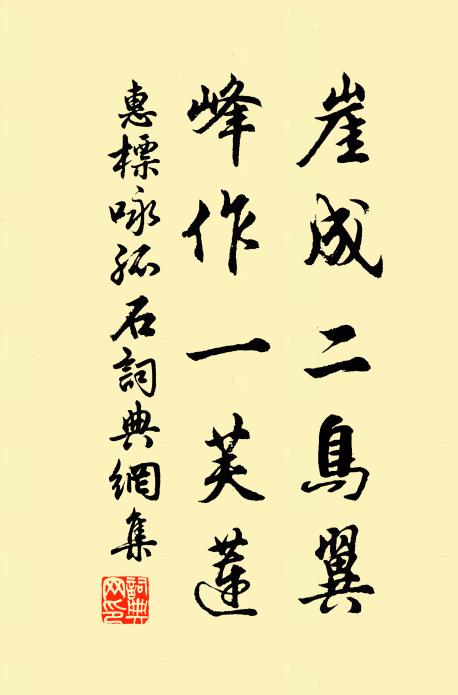 崖成二鳥翼
峰作一芙蓮
惠標咏孤石詞典網集
詞典
网印